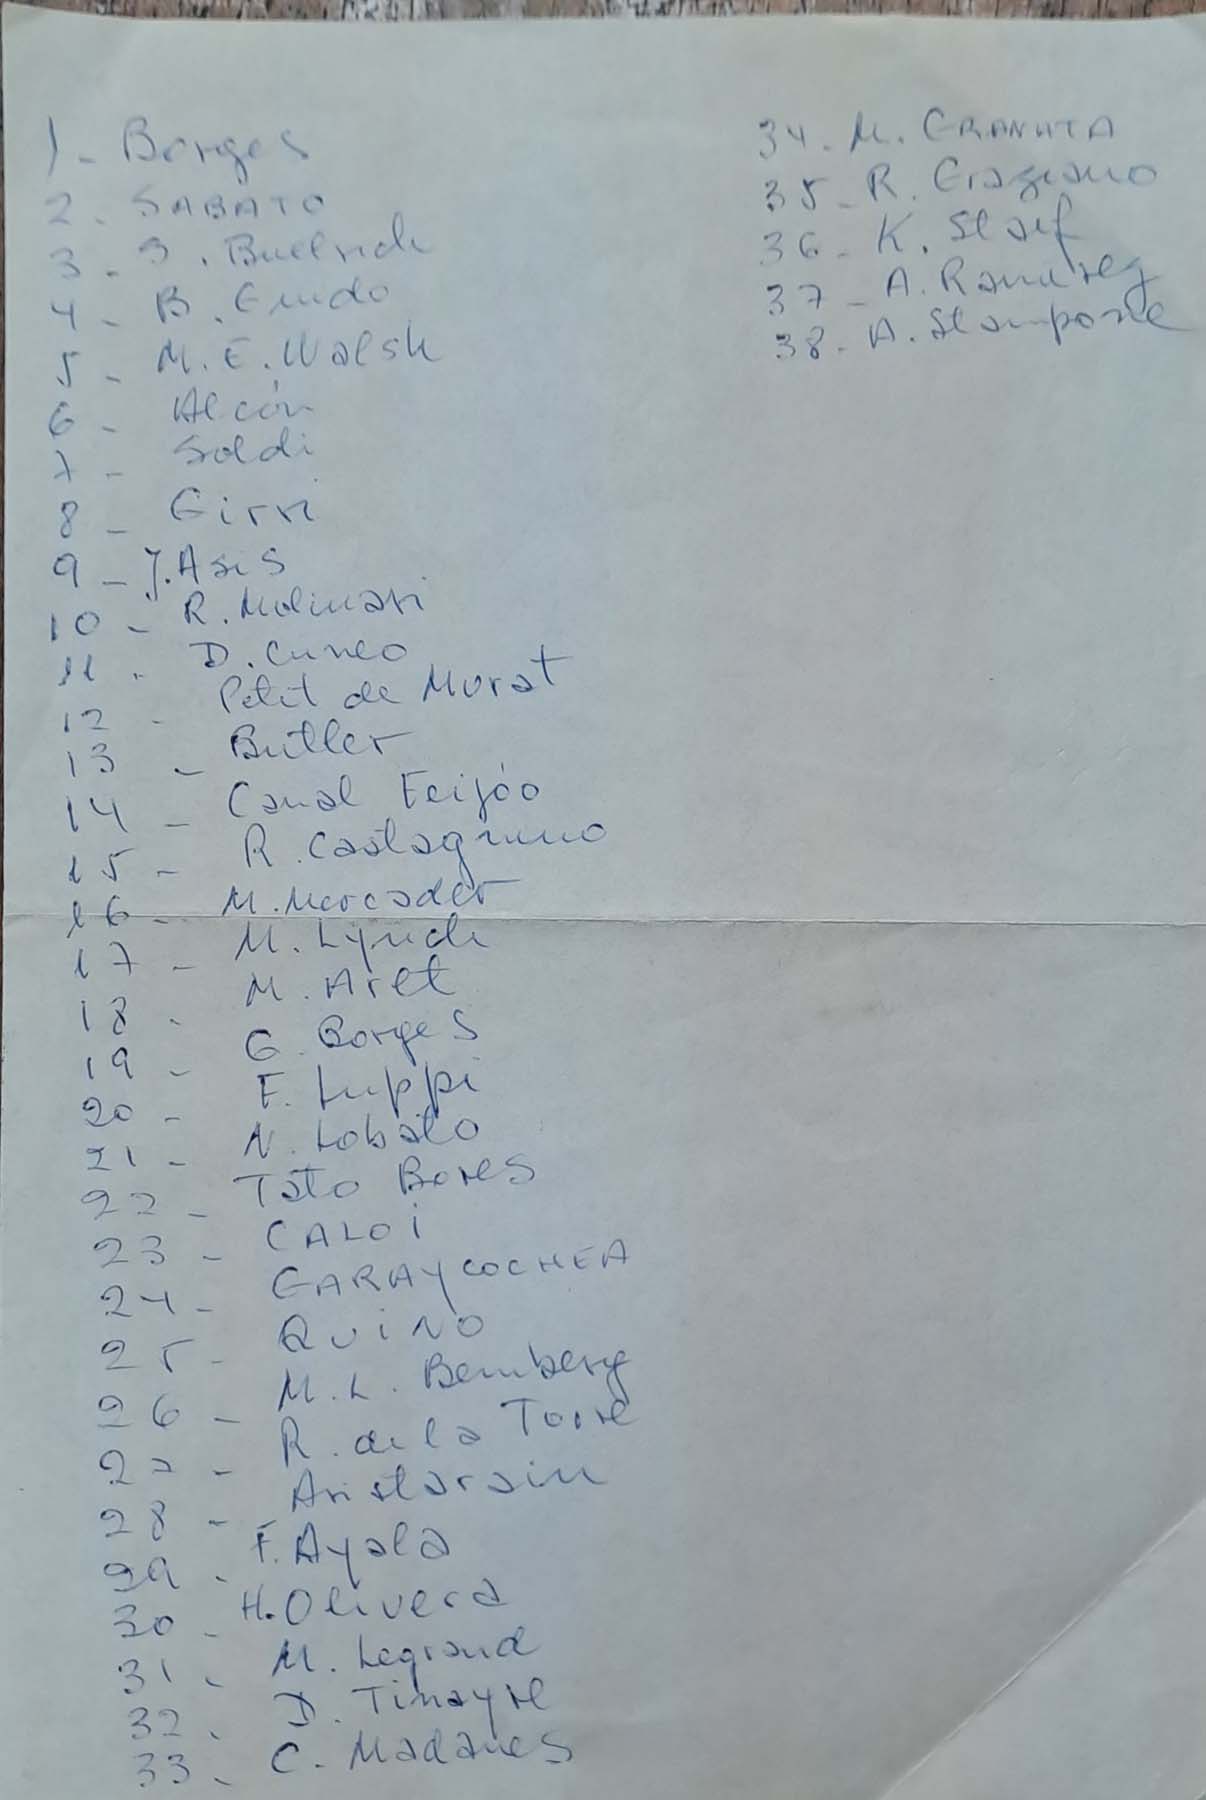 1- Borges
2- SABATO
3- S. Bullrich
4- B. Guido
5- M. E. Walsh
6- Alcón
7- Soldi
8- Girri
9- J. Asis
10- R. Molinari
11- D. Cuneo
12- Petit de Murat
13- Butler
14- Canal Feijóo
15- R. Castagnino
16- M. Mercader
17- M. Lynch
18- M. Aret
19- G. Borges
20- F. Luppi
21- N. Lobato
22- Tato Bores
23- CALOI
24- GARAYCOCHEA
25- QUINO
26- M. L. Bemberg
27- R. de la Torre
28- Aristarain
29- F. Ayala
30- H. Olivera
31- M. Legrand
32- D. Tinayre
33- C. Madanes
34- M. GRANATA
35- R. Graziano
36- K. Staif
37- A. Ramirez
38- A. Stampone